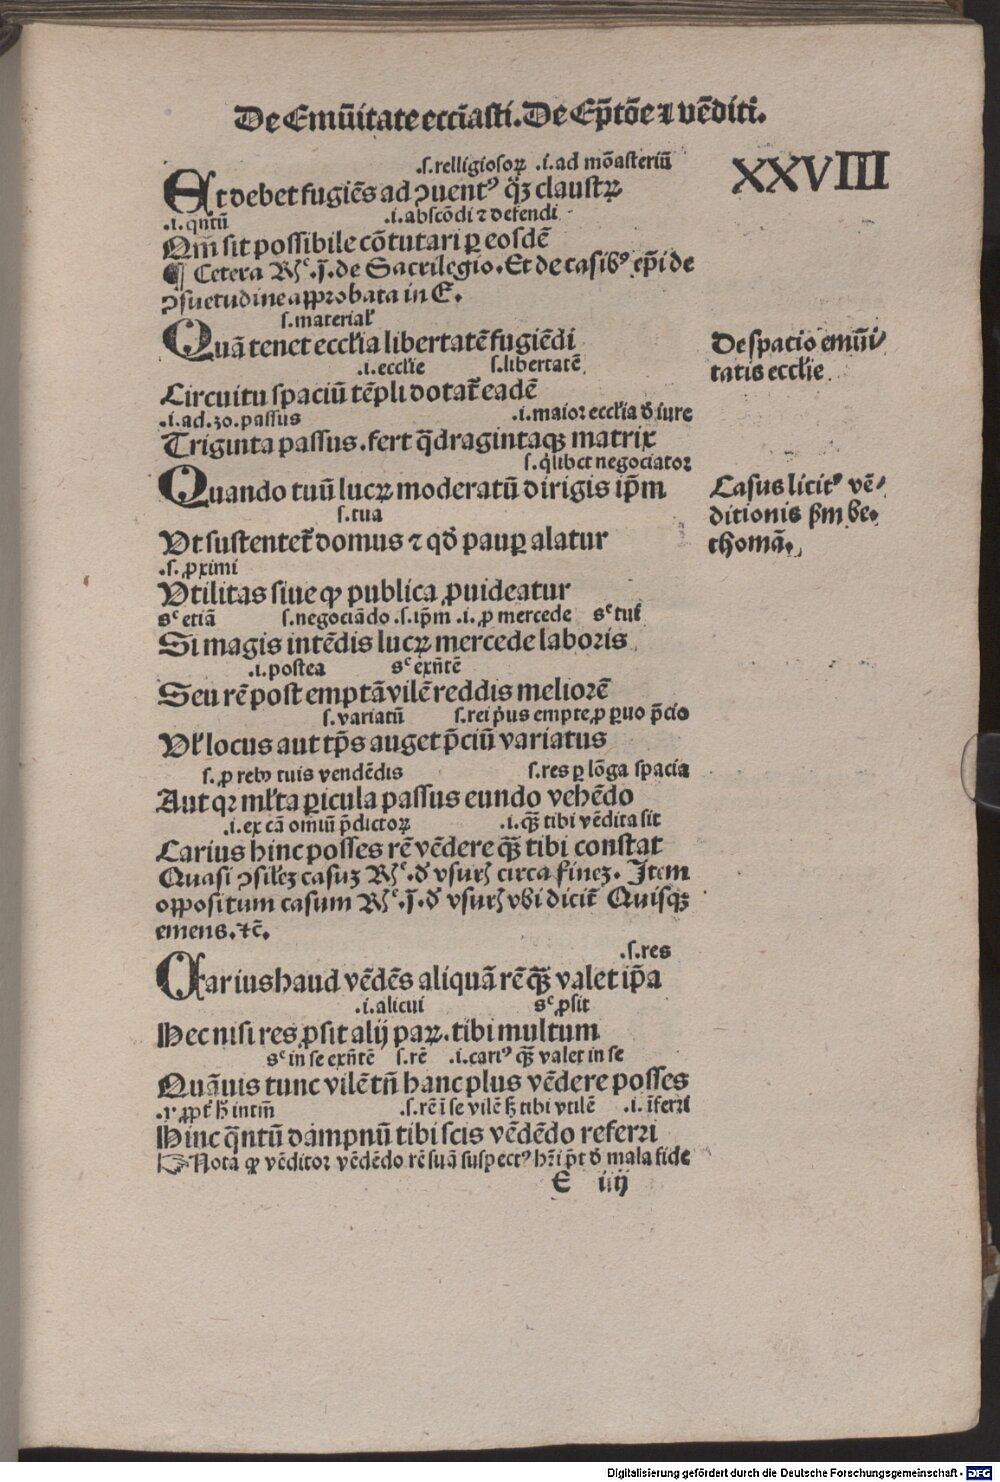 De Emūitate ecc̄iasti. De Ep̄tōe ⁊ vēditi.
XXVIII
.s. relligiosoꝝ .i. ad mōasteriū
Et debet fugiēs ad ꝯuentꝰ q̈ꝫ claustꝝ
.i. qntū .i. abscōdi ⁊ defendi
Qm̄ sit possibile cōtutari ꝑ eosdē
¶ Cetera Rͨ. j̄. de Sacrilegio. Et de casibꝰ ep̄i de
ꝯsuetudine approbata in E.
s. material̓
Quā tenet eccl̓ia libertatē fugiēdi
De spatio emūi⸗
tatis eccl̓ie
.i. eccl̓ie s. libertatē
Circuitu spaciū tēpli dotat̄ eadē
.i. ad .30. passus .i. maior eccl̓ia d̓ iure
Triginta passus. fert q̄dragintaqꝫ matrix
s. q̓libet negociator
Quando tuū lucꝝ moderatū dirigis ip̄m
Casus licitꝰ vē⸗
ditionis ẜm be.
thomā.
s. tua
Vt sustentet̄ domus ⁊ qd̓ pauꝑ alatur
.s. ꝓximi
Vtilitas siue ꝙ publica ꝓuideatur
sͨ etiā s. negociādo .s. ip̄m .i. ꝓ mercede sͨ tui̓
Si magis intēdis lucꝝ mercede laboris
.i. postea sͨ exn̄tē
Seu rē post emptā vilē reddis meliorē
s. variatū s. rei p̓us empte ꝓ ꝑuo p̄cio
Vl̓ locus aut tp̄s auget p̄ciū variatus
s. ꝓ rebꝰ tuis vendēdis s. res ꝑ lōga spacia
Aut qꝛ ml̓ta ꝑicula passus eundo vehēdo
.i. ex cā omīū p̄dictoꝝ .i. qꝫ̄ tibi vēdita sit
Carius hinc posses rē vēdere qꝫ̄ tibi constat
Quasi ꝯsil̓eꝫ casuꝫ Rͨ. d̓ vsurꝭ circa fineꝫ. Item
oppositum casum Rͨ. j̄. d̓ vsurꝭ vbi dicit̄ Quisqꝫ
emens. ⁊c̄.
.s. res
Carius haud vēdēs aliquā rē qꝫ̄ valet ip̄a
.i. alicui sͨ ꝓsit
Hec nisi res ꝓsit alij paꝝ. tibi multum
sͨ in se exn̄tē s. rē .i. cariꝰ qꝫ̄ valet in se
Quāuis tunc vilē tn̄ hanc plus vēdere posses
.s. rē ī se vilē ꝫ tibi vtilē .i. īferri
Hinc q̄ntū dampnū tibi scis vēdēdo referri
☞ Nota ꝙ vēditor vēdēdo rē suā suspectꝰ hr̄i p̄t d̓ mala fide
E iiij
Digitalisierung gefördert durch die Deutsche Forschungsgemeinschaft - DFG